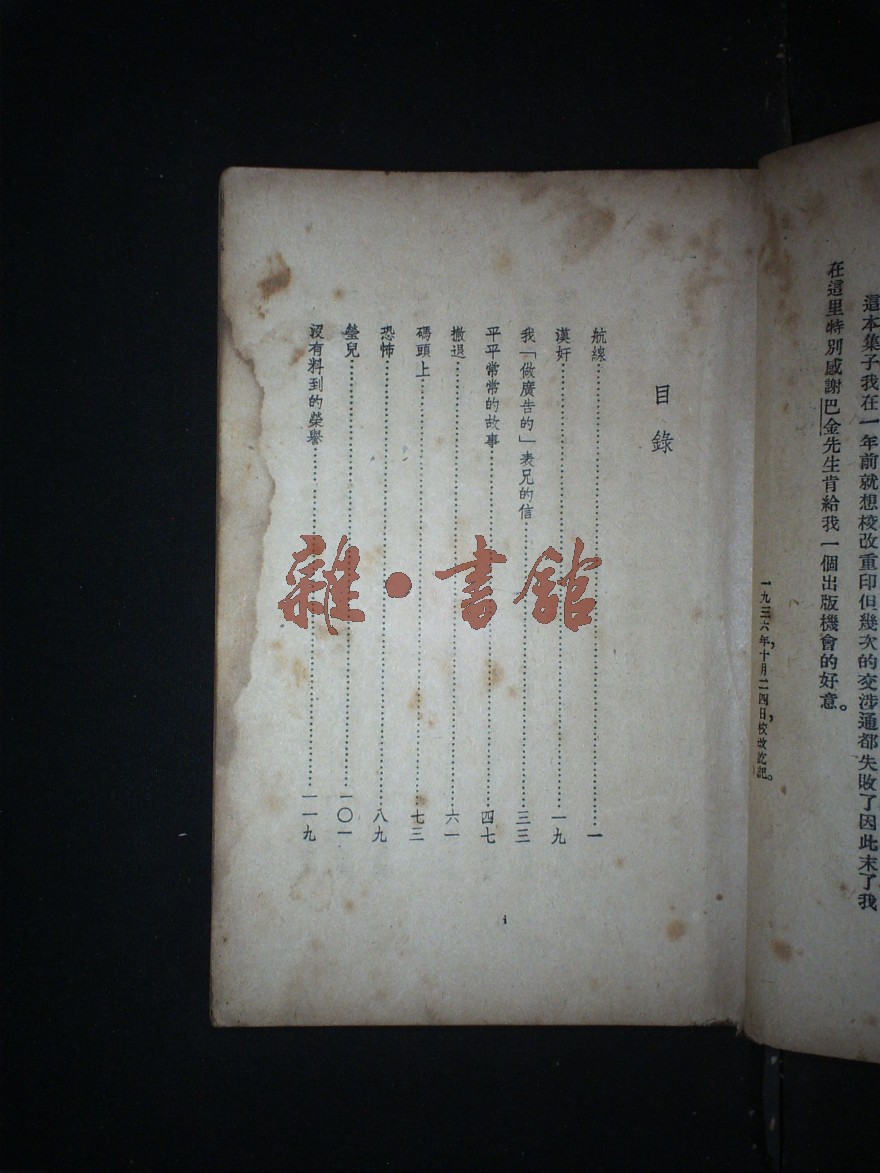 這本集子我在一年前就想校改重印但幾次的交涉通都失敗了因此末了我
在這里特別感謝巴金先生肯給我一個出版機會的好意。
一九三六年十月二四日,校改訖記。
目錄
航線……一
漢奸……一九
我「做廣告的」表兄的信……三三
平平常常的故事……四七
撤退……六一
碼頭上……七三
恐怖……八九
瑩兒……一〇一
沒有料到的榮譽……一一九
i
雜·書館